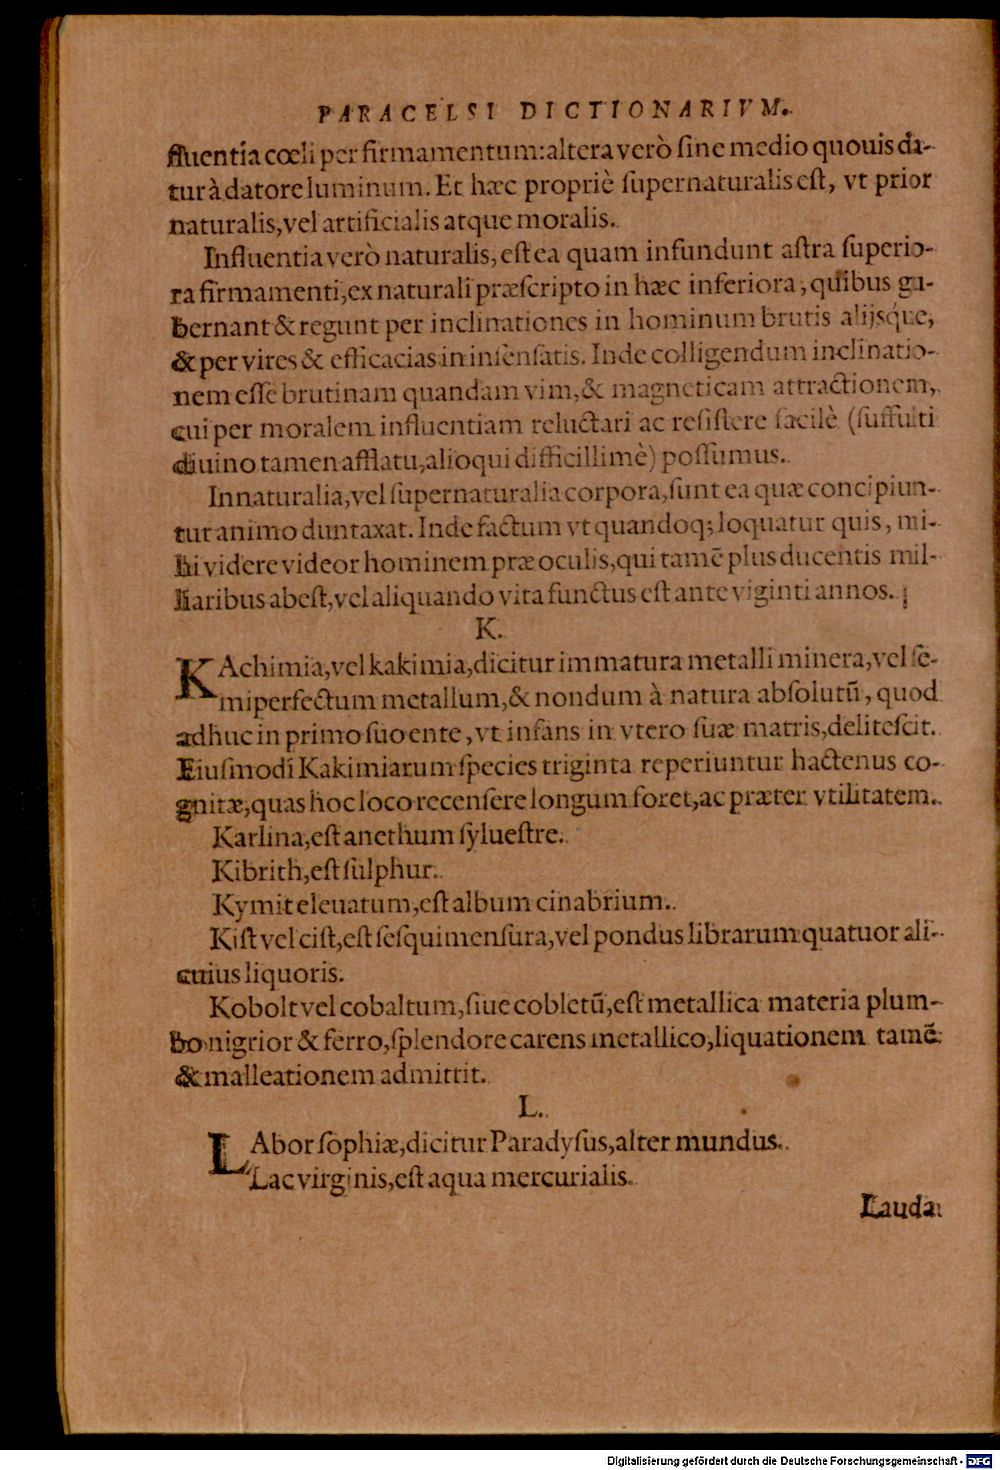 PARACELSI DICTIONARIVM.
fluentia cœli per firmamentum: altera verò sine medio quouis da-
tur à datore luminum. Et hæc propriè supernaturalis est, vt prior
naturalis, vel artificialis atque moralis.
Influentia verò naturalis, est ea quam infundunt astra superio-
ra firmamenti, ex naturali præscripto in hæc inferiora, quibus gu-
bernant & regunt per inclinationes in hominum brutis alijsq́ue,
& per vires & efficacias in insensatis. Inde colligendum inclinatio-
nem esse brutinam quandam vim, & magneticam attractionem,
cui per moralem influentiam reluctari ac resistere facilè (suffulti
diuino tamen afflatu, alioqui difficillimè) possumus.
Innaturalia, vel supernaturalia corpora, sunt ea quæ concipiun-
tur animo duntaxat. Inde factum vt quandoq; loquatur quis, mi-
hi videre videor hominem præ oculis, qui tamẽ plus ducentis mil-
liaribus abest, vel aliquando vita functus est ante viginti annos.
K.
KAchimia, vel kakimia, dicitur immatura metalli minera, vel se-
miperfectum metallum, & nondum à natura absolutũ, quod
adhuc in primo suo ente, vt infans in vtero suæ matris, delitescit.
Eiusmodi Kakimiarum species triginta reperiuntur hactenus co-
gnitæ, quas hoc loco recensere longum foret, ac præter vtilitatem.
Karlina, est anethum syluestre.
Kibrith, est sulphur.
Kymit eleuatum, est album cinabrium.
Kist vel cist, est sesquimensura, vel pondus librarum quatuor ali-
cuius liquoris.
Kobolt vel cobaltum, siue cobletũ, est metallica materia plum-
bo nigrior & ferro, splendore carens metallico, liquationem tamẽ
& malleationem admittit.
L.
LAbor sophiæ, dicitur Paradysus, alter mundus.
Lac virginis, est aqua mercurialis.
Lauda
Digitalisierung gefördert durch die Deutsche Forschungsgemeinschaft - DFG